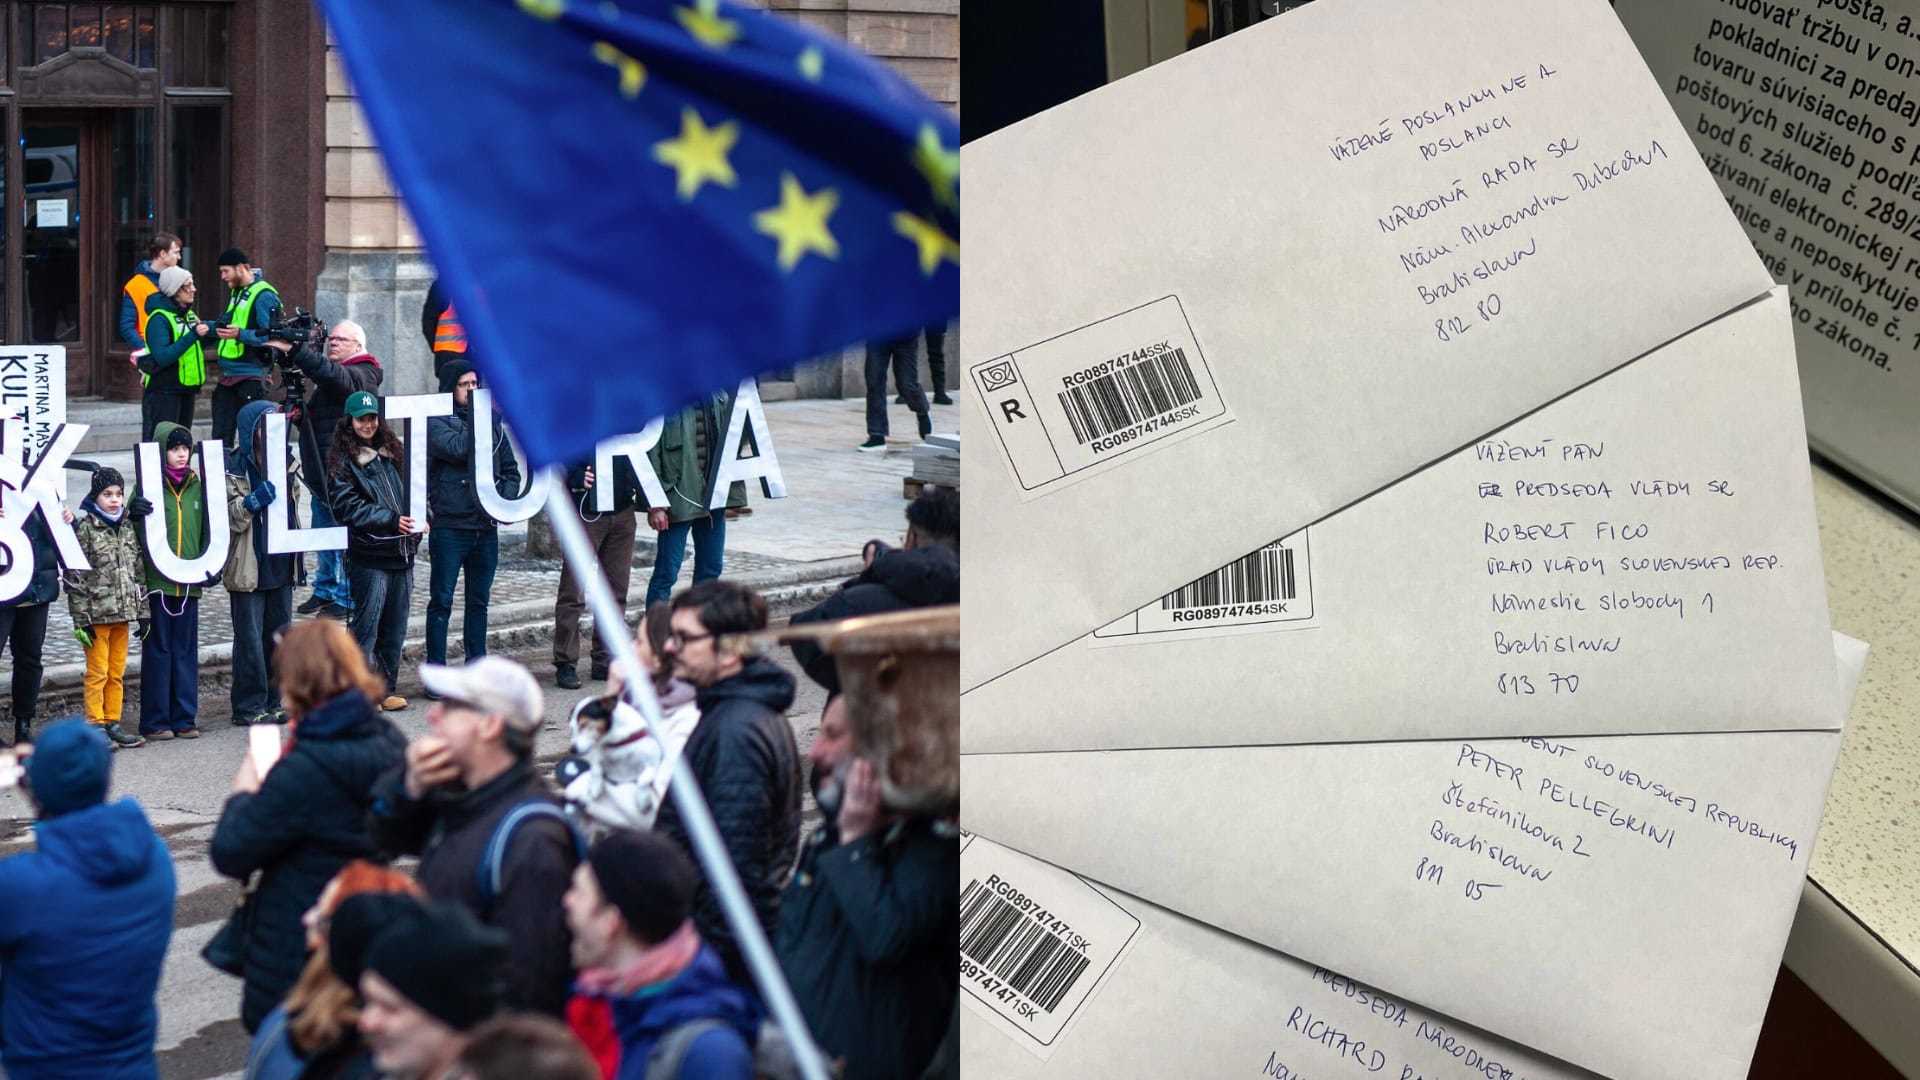 MARTINA MAS
KULT
KULTURA
VÁŽENÉ POSLANKYNE A
POSLANCI
NÁRODNÁ RADA SR
Nám. Alexandra Dubčeka 1
Bratislava
812 80
R
RG089747445SK
RG089747445SK
VÁŽENÝ PÁN
PREDSEDA VLÁDY SR
ROBERT FICO
ÚRAD VLÁDY SLOVENSKEJ REP.
Námestie slobody 1
Bratislava
813 70
RG089747454SK
SLOVENSKEJ REPUBLIKY
PETER PELLEGRINI
Štefánikova 2
Bratislava
811 05
RG089747471SK
89747471SK
PREDSEDA NÁRODNEJ
RICHARD
pošta, a.
idovať tržbu v on-
pokladnici za predaj
tovaru súvisiaceho s p
poštových služieb podľa
bod 6. zákona č. 289/2
užívaní elektronickej re
dnice a neposkytuje
né v prílohe č. 1
ho zákona.